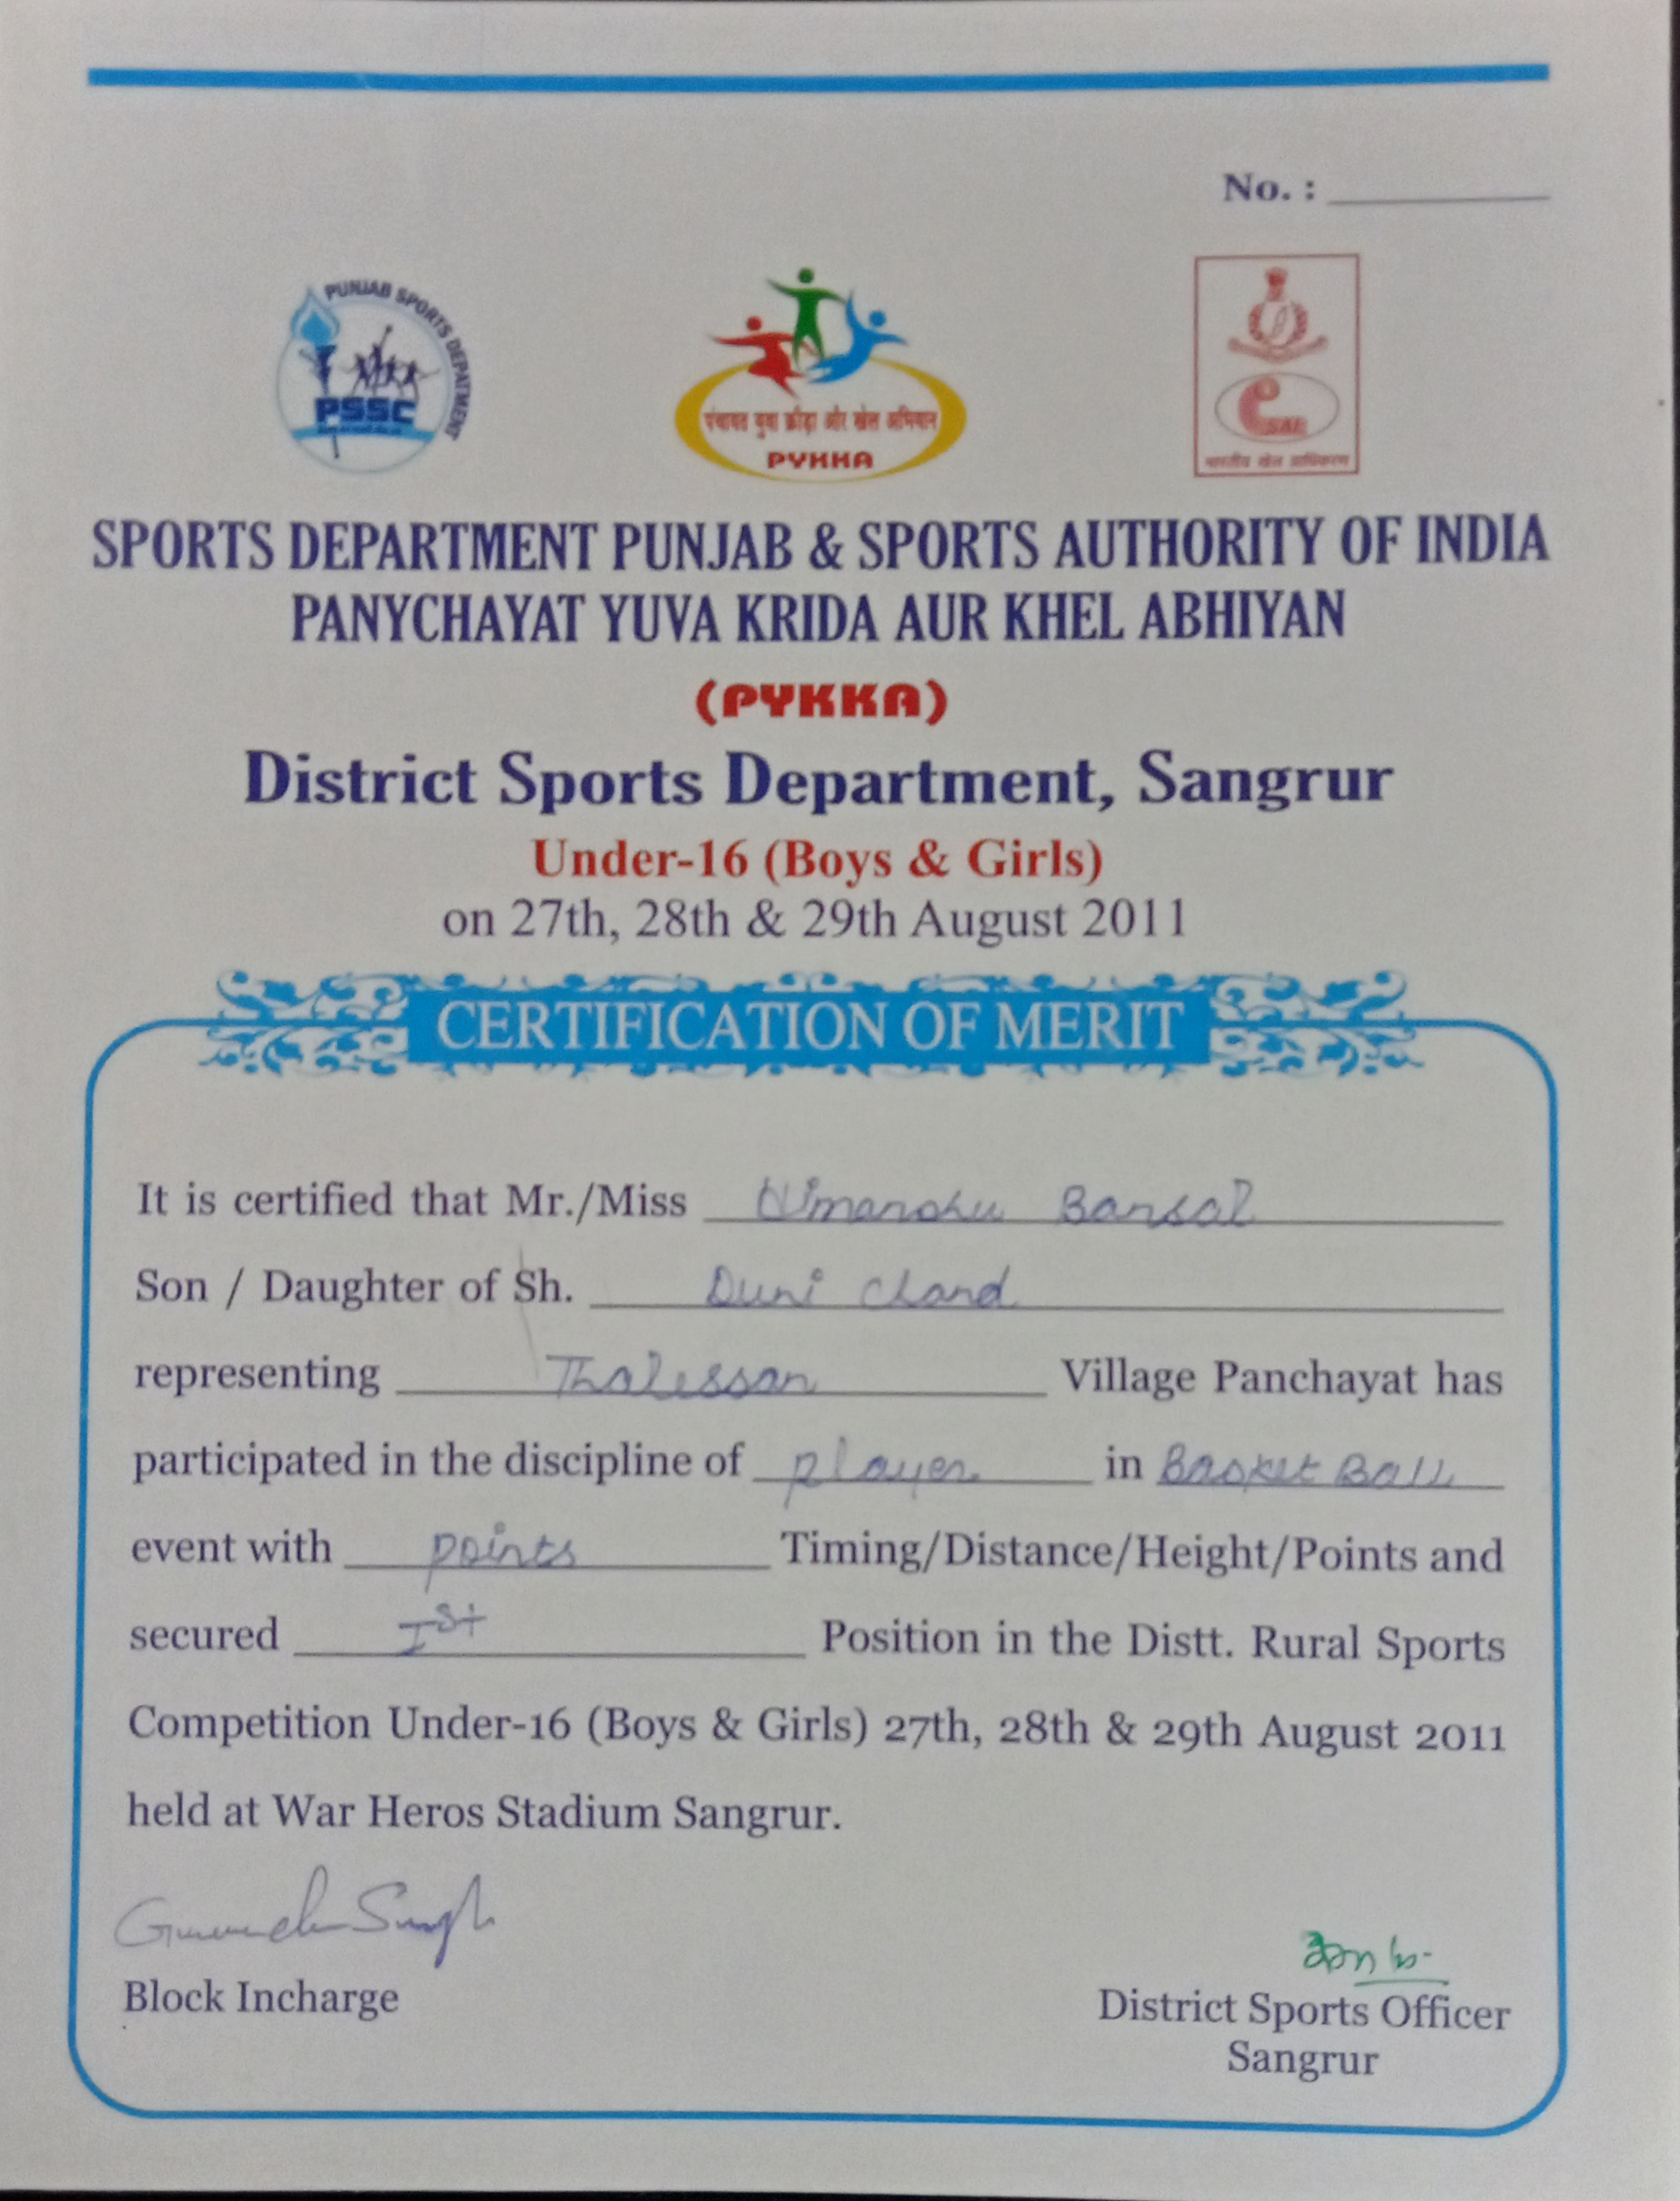 No. :
PUNJAB SPORTS DEPATMENT
PSSC
पंचायत युवा क्रीड़ा और खेल अभियान
PYKKA
SAI
भारतीय खेल प्राधिकरण
SPORTS DEPARTMENT PUNJAB & SPORTS AUTHORITY OF INDIA
PANYCHAYAT YUVA KRIDA AUR KHEL ABHIYAN
(PYKKA)
District Sports Department, Sangrur
Under-16 (Boys & Girls)
on 27th, 28th & 29th August 2011
CERTIFICATION OF MERIT
It is certified that Mr./Miss Himanshu Bansal
Son / Daughter of Sh. Duni Chand
representing Thalessan Village Panchayat has
participated in the discipline of player in Basket Ball
event with points Timing/Distance/Height/Points and
secured Ist Position in the Distt. Rural Sports
Competition Under-16 (Boys & Girls) 27th, 28th & 29th August 2011
held at War Heros Stadium Sangrur.
Singh
Block Incharge
District Sports Officer
Sangrur